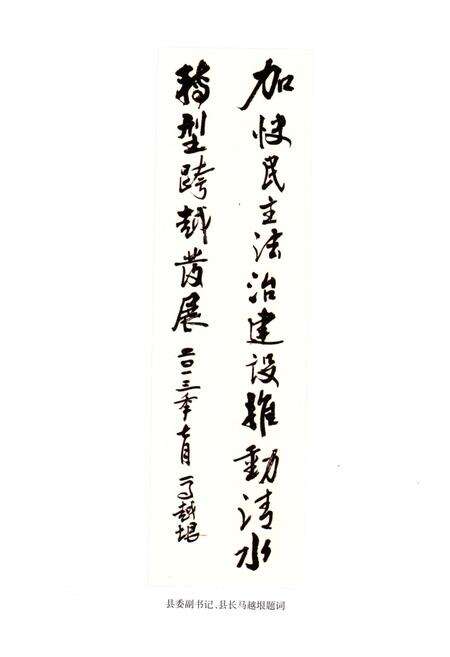 加快民主法治建设推動清水
转型跨越发展 二〇一三年七月 马越垠
县委副书记、县长马越垠题词